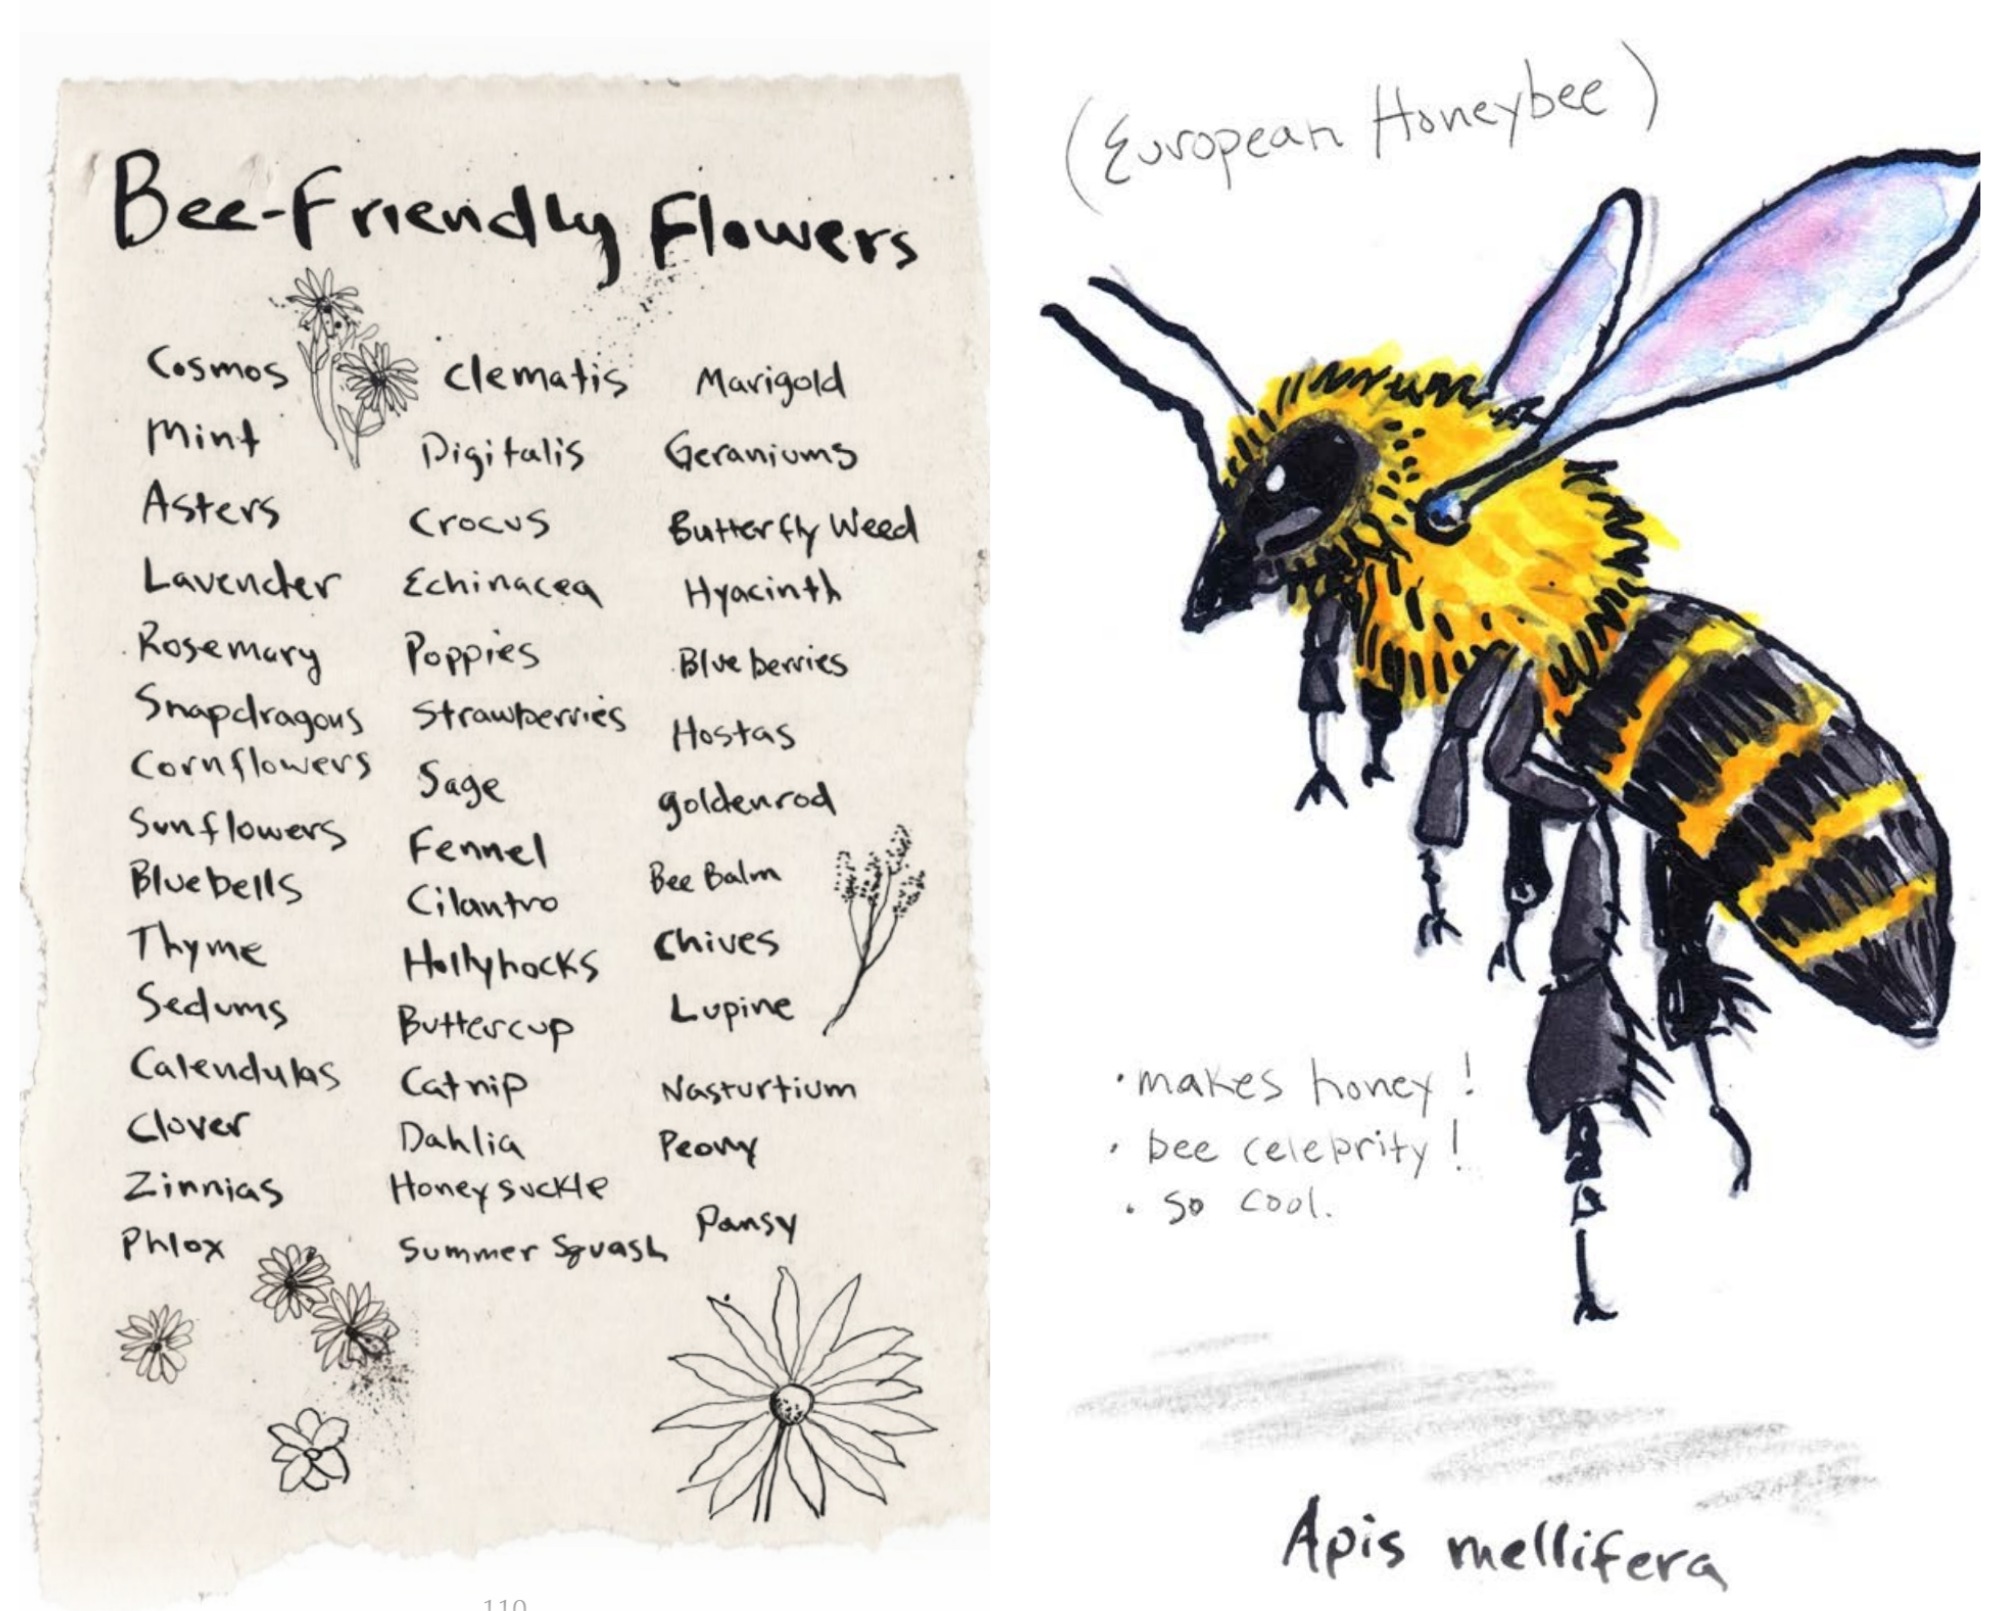 Bee-Friendly Flowers
Cosmos
Mint
Asters
Lavender
Rosemary
Snapdragons
Cornflowers
Sunflowers
Bluebells
Thyme
Sedums
Calendulas
Clover
Zinnias
Phlox
Clematis
Digitalis
Crocus
Echinacea
Poppies
Strawberries
Sage
Fennel
Cilantro
Hollyhocks
Buttercup
Catnip
Dahlia
Honeysuckle
Summer Squash
Marigold
Geraniums
Butterfly Weed
Hyacinth
Blueberries
Hostas
goldenrod
Bee Balm
Chives
Lupine
Nasturtium
Peony
Pansy
110
(European Honeybee)
• makes honey!
• bee celebrity!
• so cool.
Apis mellifera